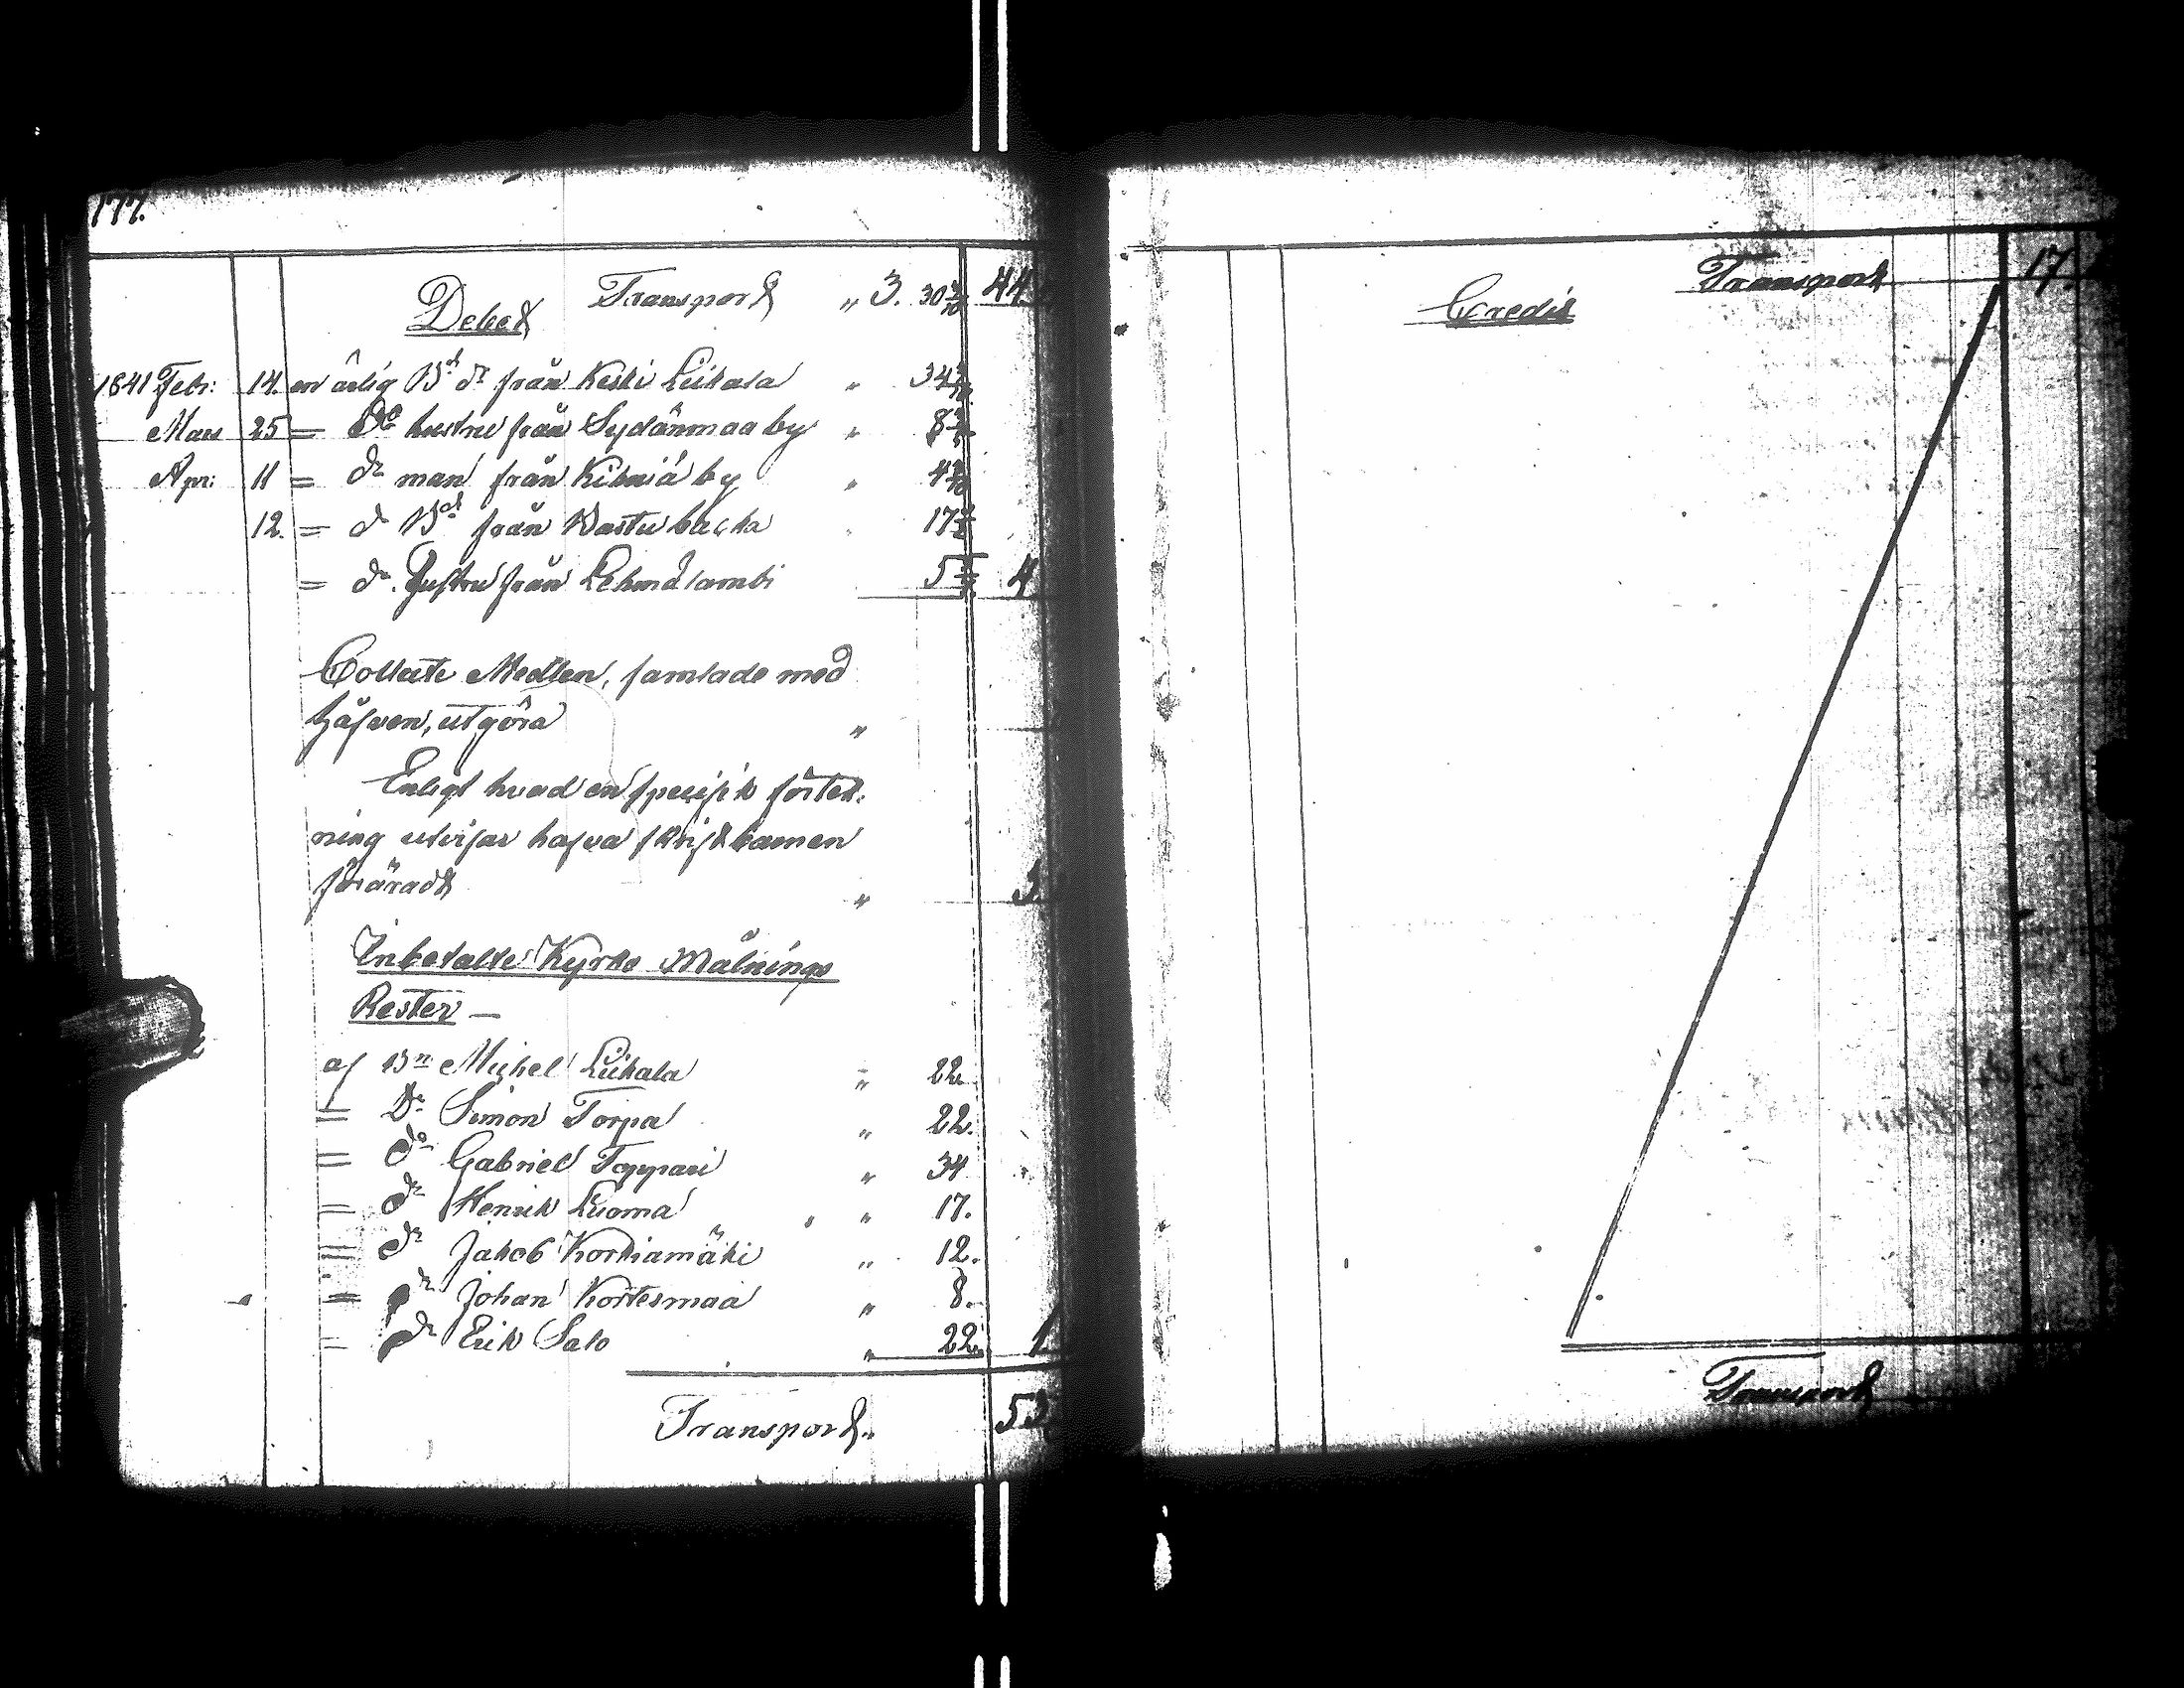 177.
Debet Transport " 3. 30 2/7 44
1841 Febr: 14. en ärlig Bd do från Keski Luhala " 34 2/7
Mars 25 = do hustru från Sydänmaa by " 8 4/7
Apr: 11 = do man från Kihniä by " 4 2/7
12. = do Bd från Bastubacka " 17 1/7
= do hustru från Lehmälambi 5 5/7 4
Collecte Medlen, samlade med
håfven, utgöra "
Enligt hvad en specifik förtek-
ning utvisar hafva skriftbarnen
föräradt " 3
Inbetalte Kyrko Målnings
Rester —
af Bn Michel Luhala " 22.
= Do Simon Torpa " 22.
= do Gabriel Toppari " 34
= do Henrik Luoma " 17.
= do Jakob Korkiamäki " 12.
= do Johan Kortesmaa " 8.
= do Erik Salo " 22. 1
Transport " 53
Credit Transport 17
Transport